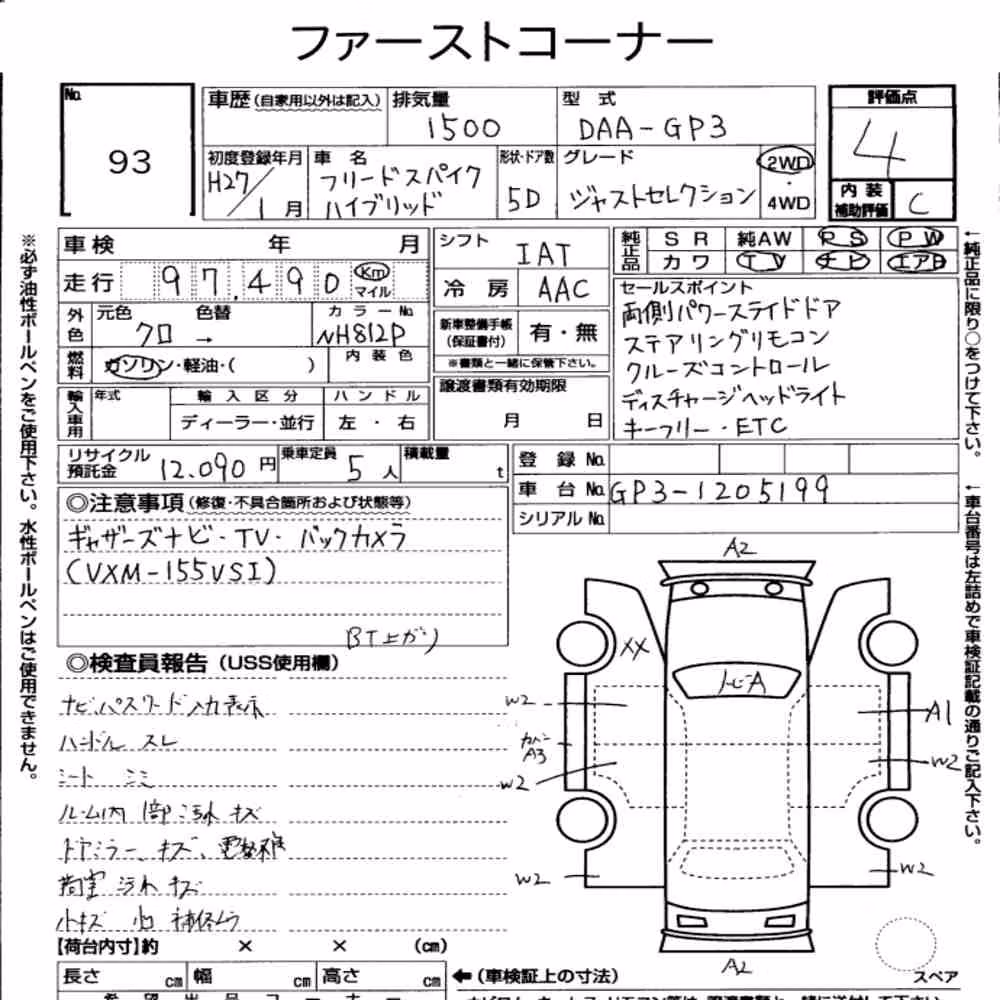 ファーストコーナー
No.
93
車歴 (自家用以外は記入)
排気量
1500
型 式
DAA-GP3
初度登録年月
H27/1月
車 名
フリードスパイク
ハイブリッド
形状・ドア数
5D
グレード
ジャストセレクション
2WD
・
4WD
評価点
4
内 装
補助評価
C
※必ず油性ボールペンをご使用下さい。水性ボールペンはご使用できません。
車 検 年 月
走行 97,490 Km
マイル
外色
元色 色替
クロ →
カラーNo.
NH812P
燃料
ガソリン・軽油・( )
内 装 色
輸入車用
年式
輸 入 区 分
ディーラー・並行
ハ ン ド ル
左 ・ 右
シフト
IAT
冷 房
AAC
新車整備手帳
(保証書付)
有・無
※書類と一緒に保管下さい。
譲渡書類有効期限
月 日
純正品
S R 純AW P S P W
カワ T V ナビ エアB
セールスポイント
両側パワースライドドア
ステアリングリモコン
クルーズコントロール
ディスチャージヘッドライト
キーフリー・ETC
←純正品に限り○をつけて下さい。
リサイクル
預託金
12.090 円
乗車定員
5 人
積載量
t
登 録 No.
車 台 No.
GP3-1205199
シリアル No.
←車台番号は左詰めで車検証記載の通りご記入下さい。
◎注意事項 (修復・不具合箇所および状態等)
ギャザーズナビ・TV・バックカメラ
(VXM-155VSI)
BT上がり
◎検査員報告 (USS使用欄)
ナビパスワード入力表示
ハンドル スレ
シート シミ
ルーム内 部 汚れ キズ
ドアミラー、キズ、電格難
荷室 汚れ キズ
小キズ 凹
A2
XX
トビA
W2
A1
カバー
A3
W2
W2
W2
W2
A2
スペア
【荷台内寸】約 × × (cm)
長さ cm 幅 cm 高さ cm
←(車検証上の寸法)